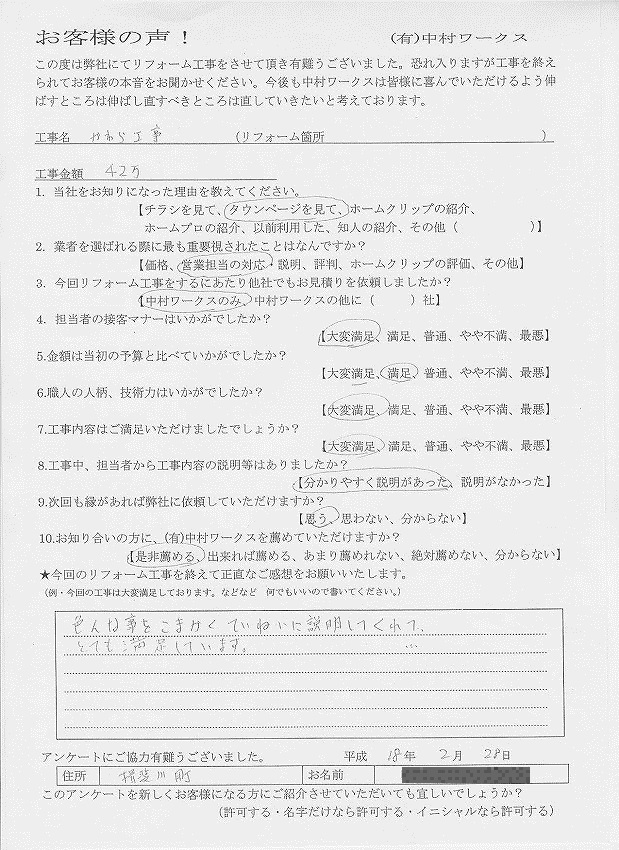 お客様の声！ (有)中村ワークス
この度は弊社にてリフォーム工事をさせて頂き有難うございました。恐れ入りますが工事を終え
られてお客様の本音をお聞かせください。今後も中村ワークスは皆様に喜んでいただけるよう伸
ばすところは伸ばし直すべきところは直していきたいと考えております。
工事名 かわら工事 (リフォーム箇所 )
工事金額 42万
1. 当社をお知りになった理由を教えてください。
【チラシを見て、タウンページを見て、ホームクリップの紹介、
ホームプロの紹介、以前利用した、知人の紹介、その他（ ）】
2. 業者を選ばれる際に最も重要視されたことはなんですか？
【価格、営業担当の対応・説明、評判、ホームクリップの評価、その他】
3. 今回リフォーム工事をするにあたり他社でもお見積りを依頼しましたか？
【中村ワークスのみ、中村ワークスの他に（ ）社】
4. 担当者の接客マナーはいかがでしたか？
【大変満足、満足、普通、やや不満、最悪】
5.金額は当初の予算と比べていかがでしたか？
【大変満足、満足、普通、やや不満、最悪】
6.職人の人柄、技術力はいかがでしたか？
【大変満足、満足、普通、やや不満、最悪】
7.工事内容はご満足いただけましたでしょうか？
【大変満足、満足、普通、やや不満、最悪】
8.工事中、担当者から工事内容の説明等はありましたか？
【分かりやすく説明があった、説明がなかった】
9.次回も縁があれば弊社に依頼していただけますか？
【思う、思わない、分からない】
10.お知り合いの方に、(有)中村ワークスを薦めていただけますか？
【是非薦める、出来れば薦める、あまり薦めれない、絶対薦めない、分からない】
★今回のリフォーム工事を終えて正直なご感想をお願いいたします。
（例・今回の工事は大変満足しております。などなど 何でもいいので書いてください。）
色んな事をこまかくていねいに説明してくれて、
とても満足しています。
アンケートにご協力有難うございました。 平成 18年 2月 28日
住所 揖斐川町 お名前
このアンケートを新しくお客様になる方にご紹介させていただいても宜しいでしょうか？
（許可する・名字だけなら許可する・イニシャルなら許可する）